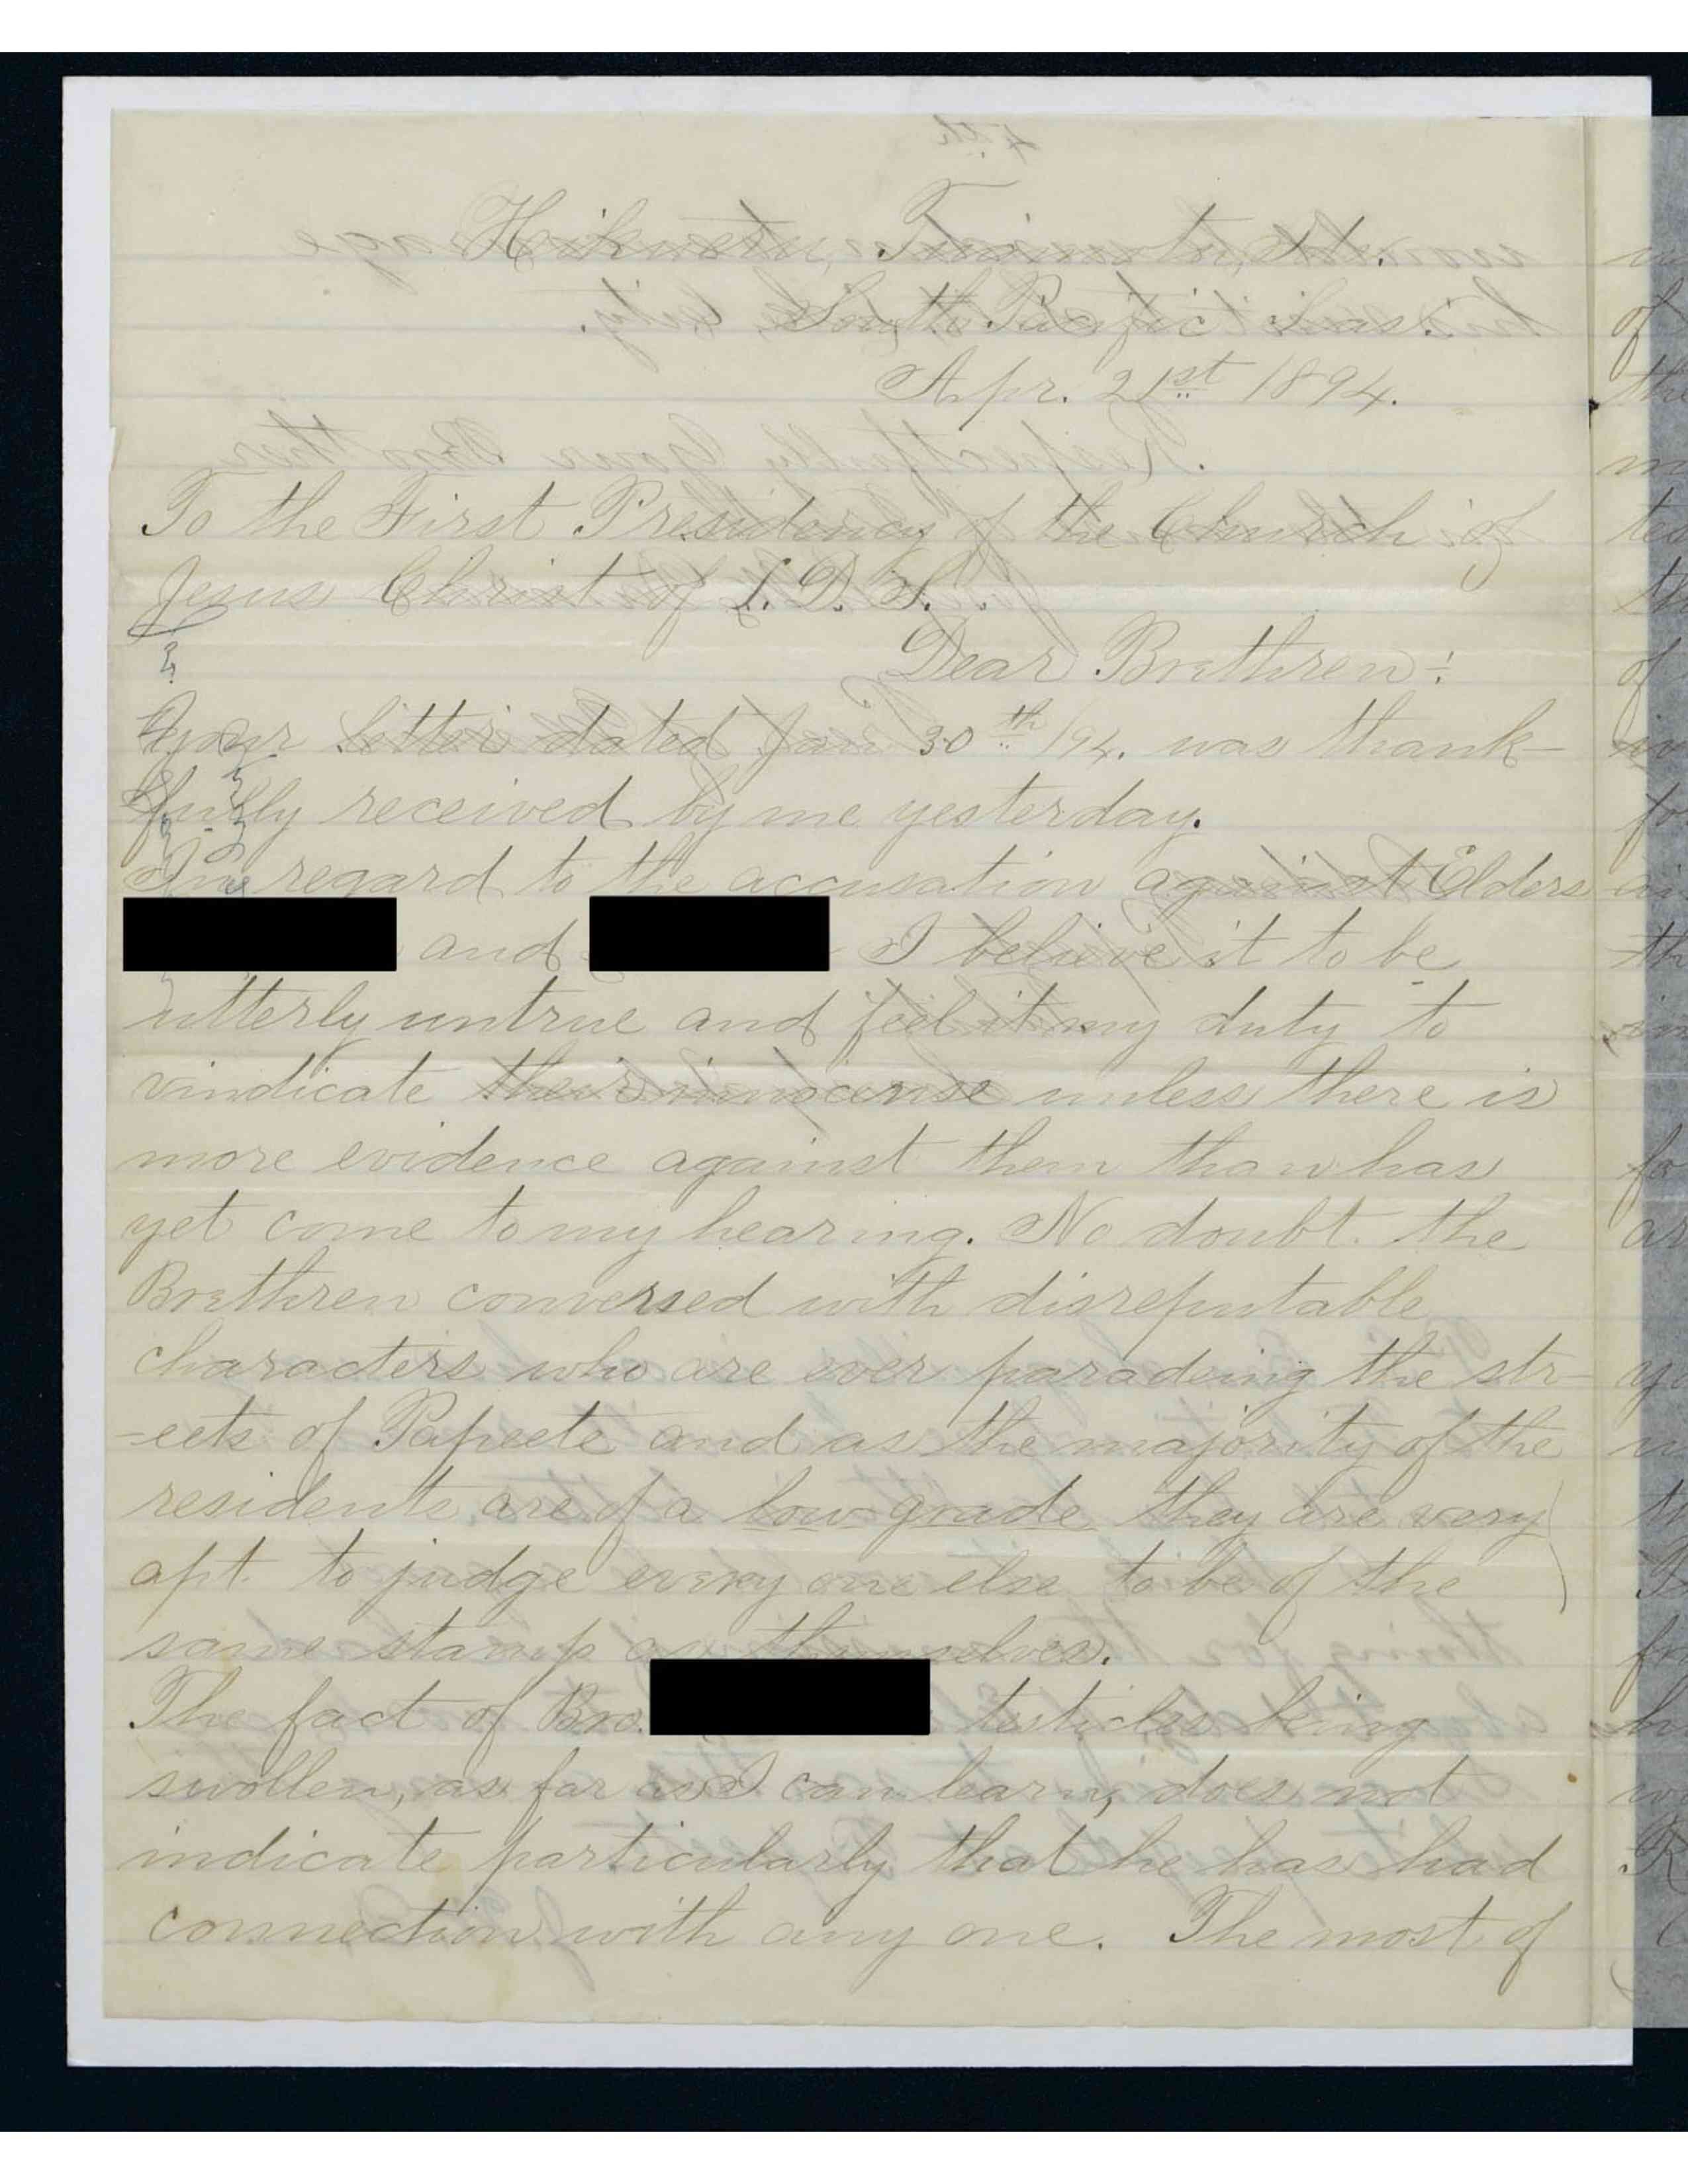 Hikueru, Tuamotu, Ids.
South Pacific Seas.
Apr. 21st 1894.
To the First Presidency of the Church of
Jesus Christ of L. D. S.
Dear Brethren:
Your letter dated Jan 30th /94. was thank-
fully received by me yesterday.
In regard to the accusation against Elders
and I believe it to be
utterly untrue and feel it my duty to
vindicate their innocense unless there is
more evidence against them than has
yet come to my hearing. No doubt the
Brethren conversed with disreputable
characters who are ever paradeing the str-
-eets of Papeete and as the majority of the
residents are of a low grade they are very
apt to judge every one else to be of the
same stamp as themselves.
The fact of Bro. testicles being
swollen, as far as I can learn, does not
indicate particularly that he has had
connection with any one. The most of